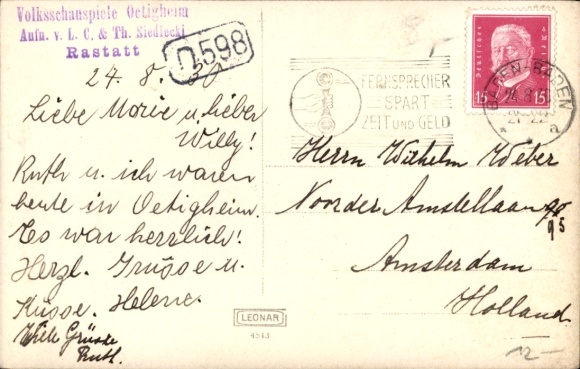 Volksschauspiele Oetigheim
Aufn. v. L. C. & Th. Siedlecki
Rastatt
D598
24. 8. 30
Liebe Marie u. lieber
Willy!
Ruth u. ich waren
heute in Oetigheim.
Es war herrlich!
Herzl. Grüsse u.
Küsse. Helene.
Viele Grüsse
Ruth.
FERNSPRECHER
SPART
ZEIT UND GELD
Deutsches Reich
15 15
BADEN-BADEN
21-22
a
Herrn Wilhelm Weber
Noorder Amstellaan
95
Amsterdam
Holland
LEONAR
4513
12-